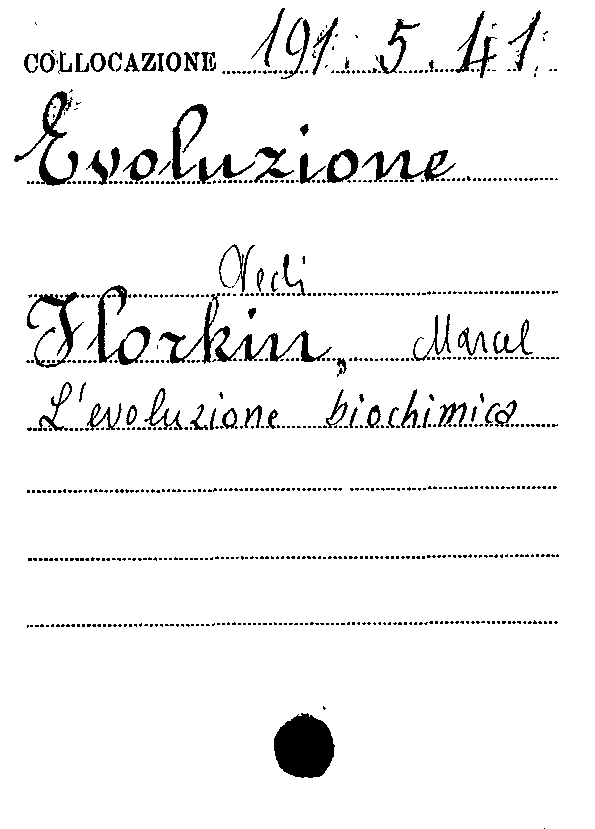 COLLOCAZIONE 191. 5. 41.
Evoluzione
Vedi
Florkin, Marcel
L'evoluzione biochimica